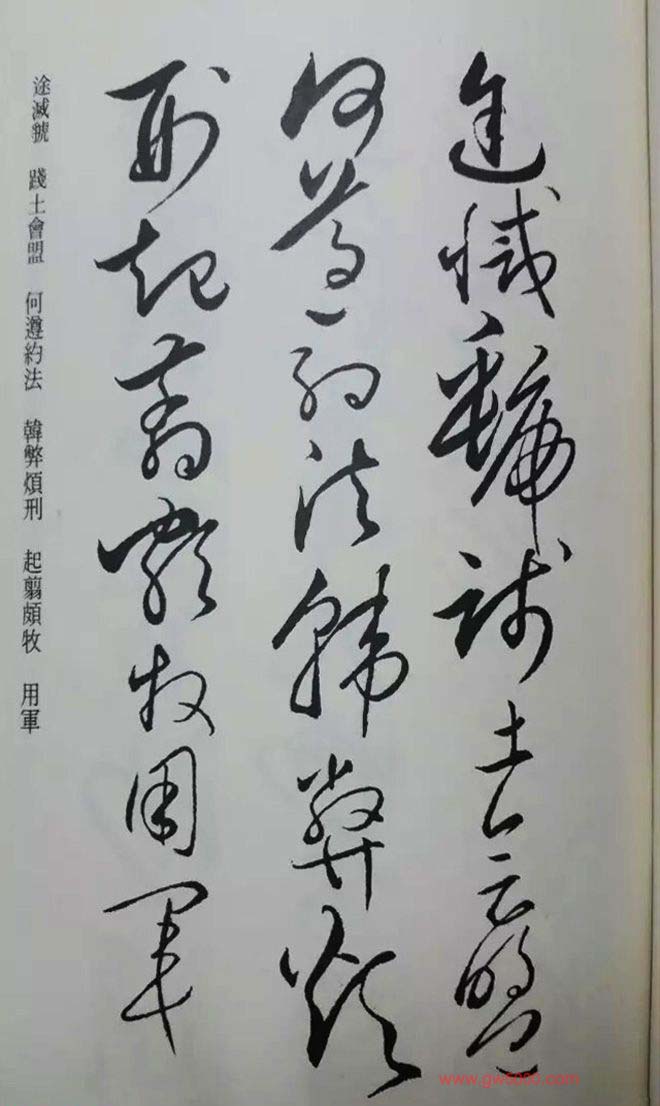 途滅虢踐土會盟
何遵約法韓弊煩
刑起翦頗牧用軍
途滅虢 踐土會盟 何遵約法 韓弊煩刑 起翦頗牧 用軍
www.gw5000.com